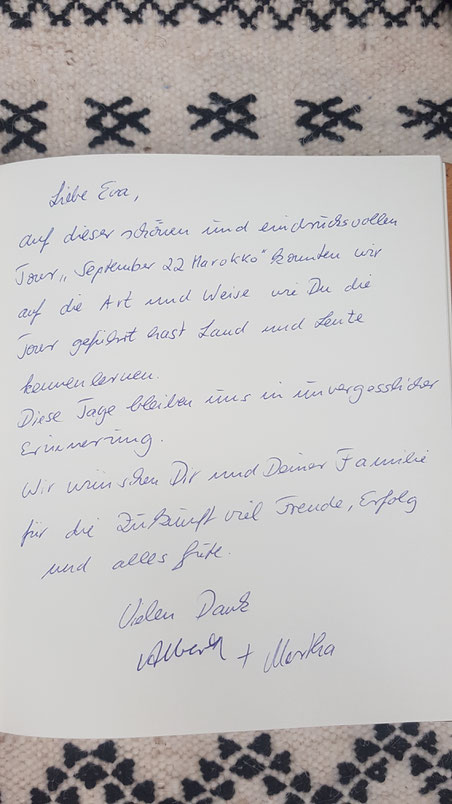 Liebe Eva,
auf dieser schönen und eindrucksvollen
Tour „September 22 Marokko" konnten wir
auf die Art und Weise wie Du die
Tour geführt hast Land und Leute
kennenlernen.
Diese Tage bleiben uns in unvergesslicher
Erinnerung.
Wir wünschen Dir und Deiner Familie
für die Zukunft viel Freude, Erfolg
und alles Gute.
Vielen Dank
Albert + Martha